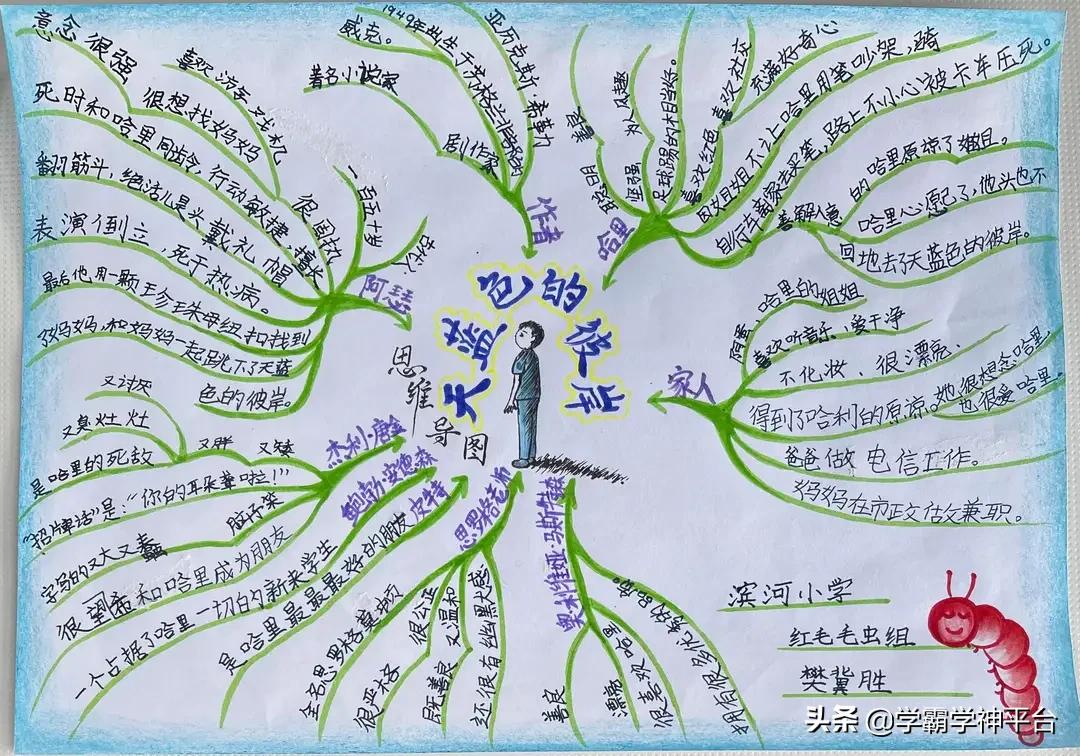 天蓝色的彼岸
思维导图
作者
著名小说家
剧作家
威克。
亚历克斯·希勒力
哈里
善良
为人风趣
聪明
坚强
足球踢的木目当好。
喜欢红色
喜欢社交
充满好奇心
因為姐姐不让哈里用笔吵架,骑
自行车离家去买笔,路上不小心被卡车压死。
善解人意
的哈里原谅了姐姐。
哈里心愿已了,他头也不
回地去了天蓝色的彼岸。
家人
哈里的姐姐
喜欢听音乐、爱干净
不化妆、很漂亮、
得到了哈利的原谅。她很想念哈里,
也很爱哈里。
爸爸做电信工作。
妈妈在市政估故兼职。
阿瑟
意念很强
喜欢游车老虎机
很想找妈妈
死时和哈里同龄,行动敏捷,擅长
翻筋斗,绝活儿是头戴礼帽
表演倒立,死于热病。
最后他用一颗珍珠母纽扣找到
了妈妈,和妈妈一起跳下了天蓝
色的彼岸。
很固执
一百五十岁
杰利·唐金
又讨厌
又臭灶灶
又胖
又矮
是哈里的死敌
"招牌话"是:"你的耳朵聋啦!"
脑子笨
字写的又大又蠢
鲍勃·安德森
很望希和哈里成为朋友
一个占据了哈里一切的新来学生
皮特
是哈里最最最好的朋友
思罗格老师
全名思罗格莫顿
很严格
很公正
既善良
又温和
还很有丝幽默感
奥利维亚·马斯特森
善良
漂亮
很喜欢哈里
拥有很多优秀的品质。
滨河小学
红毛毛虫组
樊冀胜
头条 @学霸学神平台